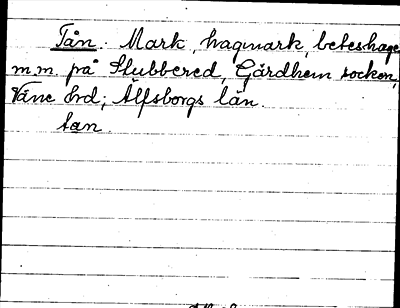 Tån. Mark, hagmark, beteshage
m.m. på Stubbered, Gärdhem socken,
Väne hrd; Älfsborgs län.
tan.